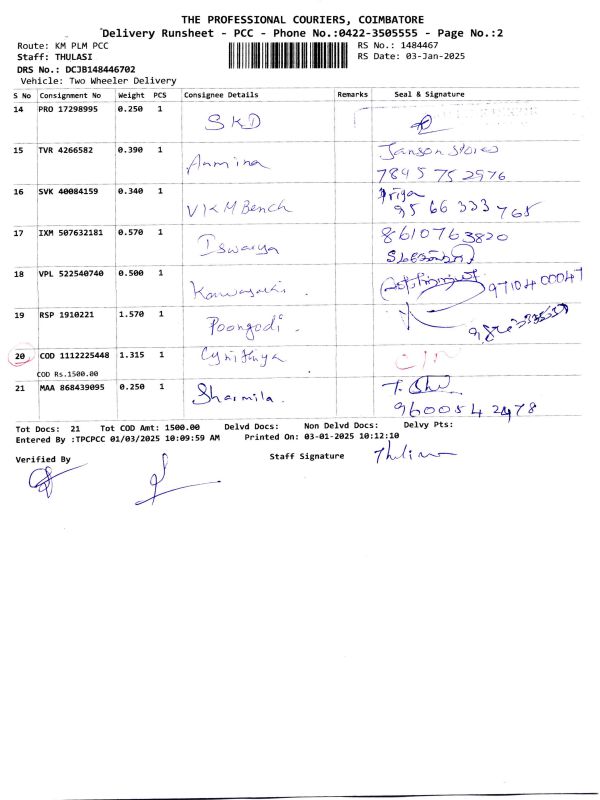 THE PROFESSIONAL COURIERS, COIMBATORE
Delivery Runsheet - PCC - Phone No.:0422-3505555 - Page No.:2
Route: KM PLM PCC RS No.: 1484467
Staff: THULASI RS Date: 03-Jan-2025
DRS No.: DCJB148446702
Vehicle: Two Wheeler Delivery
S No Consignment No Weight PCS Consignee Details Remarks Seal & Signature
14 PRO 17298995 0.250 1 SKD
15 TVR 4266582 0.390 1 Ammina Janson Stores
7895752976
16 SVK 40084159 0.340 1 VKM Bench Priya
9566333765
17 IXM 507632181 0.570 1 Iswarya 8610763820
18 VPL 522540740 0.500 1 9710400047
19 RSP 1910221 1.570 1 Poongodi.
20 COD 1112225448 1.315 1
COD Rs.1500.00
21 MAA 868439095 0.250 1 Sharmila.
9600542478
Tot Docs: 21 Tot COD Amt: 1500.00 Delvd Docs: Non Delvd Docs: Delvy Pts:
Entered By :TPCPCC 01/03/2025 10:09:59 AM Printed On: 03-01-2025 10:12:10
Verified By Staff Signature